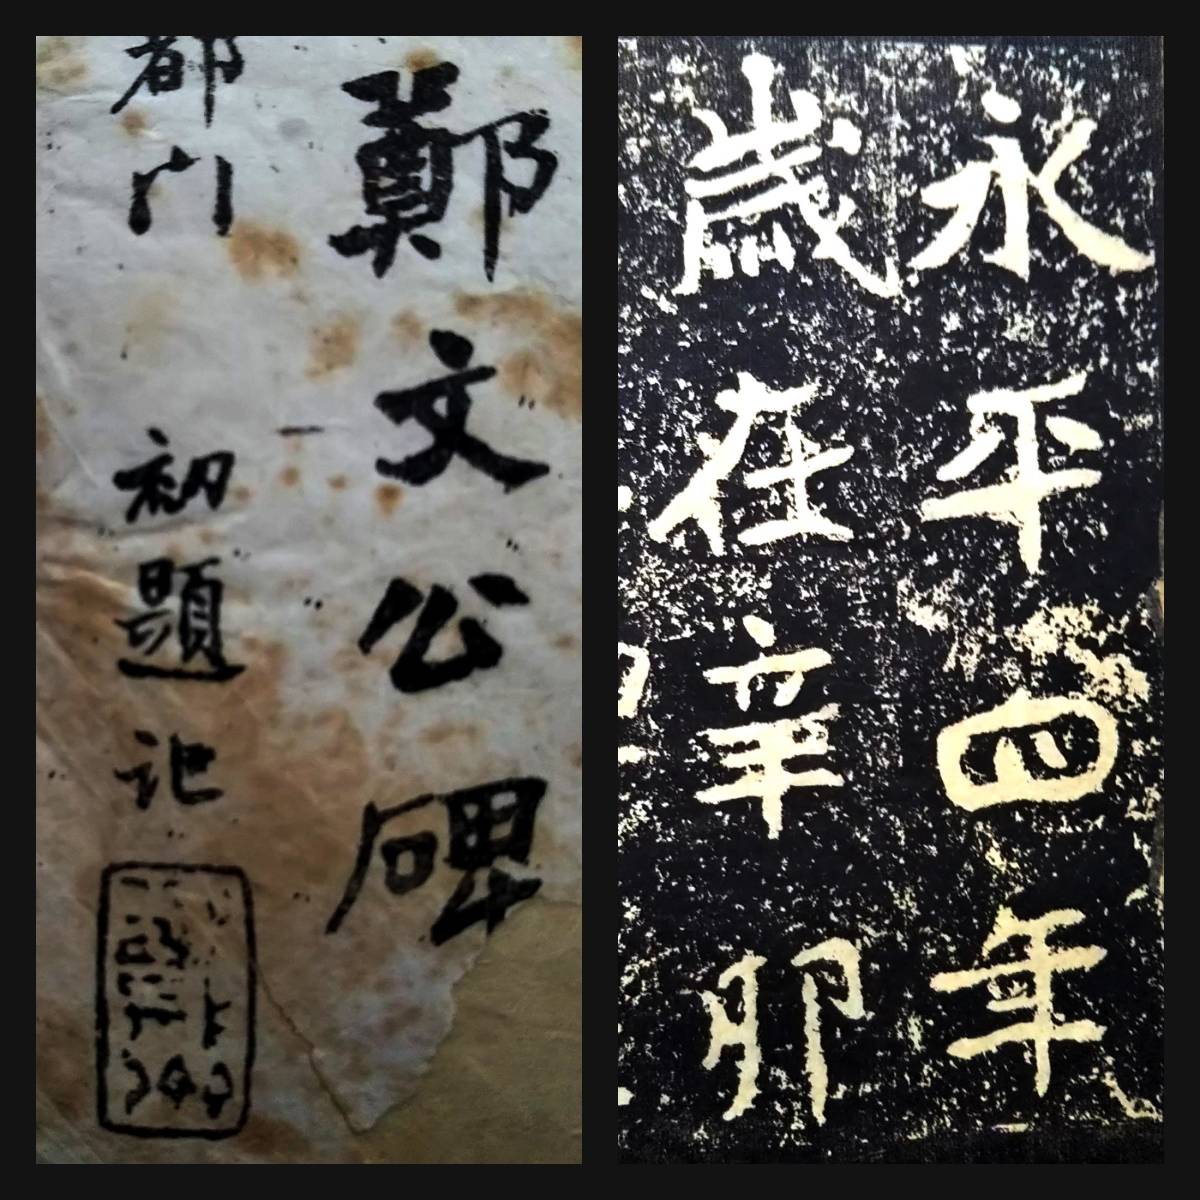 鄭文公碑
都门
初題记
永平四年
歲在辛卯